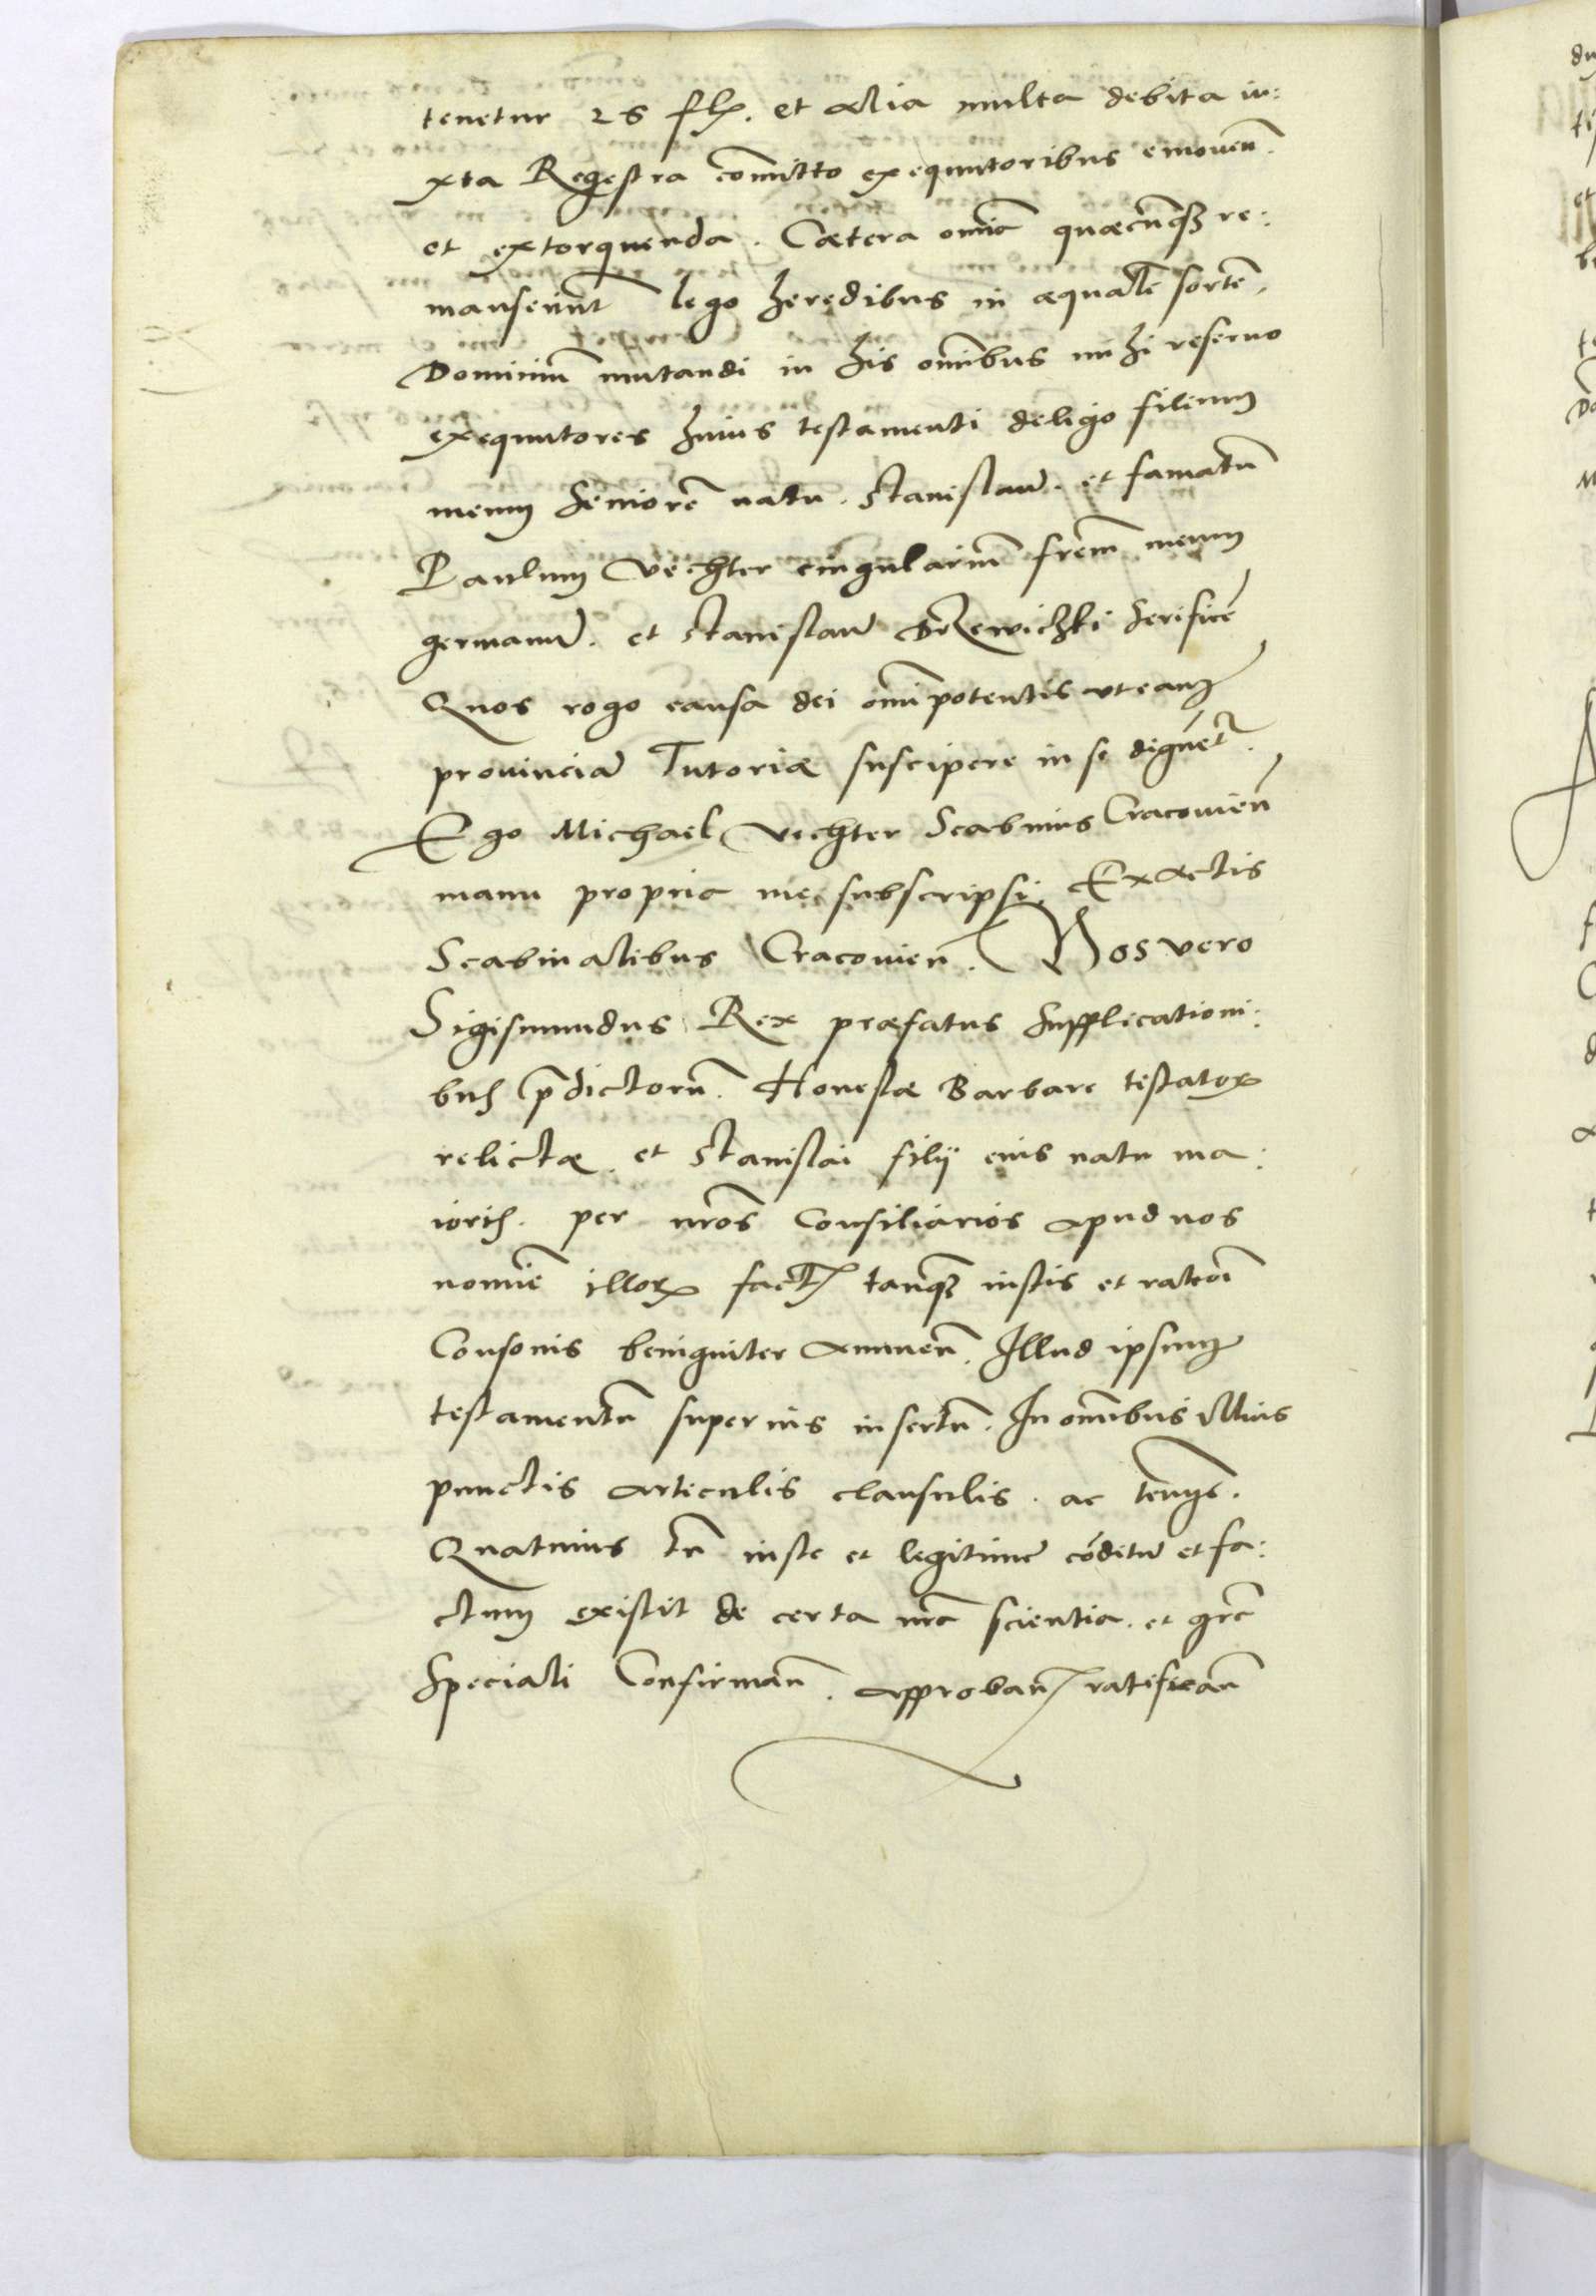 tenetur 26 fl. et alia multa debita iu:
xta Regestra com̄itto exequutoribus emouen̄.
et extorquenda. Cætera om̄ia quæcūq3 re:
manserūnt lego heredibus in æqualē sortē,
Dominiū mutandi in his om̄ibus mihi reseruo
exequutores huius testamenti deligo filium
meum seniorē natu. Stanislaū. et famatū
Paulum Vechter cingulariū frēm meum
germanū. et Stanislaū serificē
Quos rogo causa dei om̄ipotentis vt eam
prouinciā Tutoriæ suscipere in se dignēt.
Ego Michael Vechter Scabinus Cracouien̄
manu propria me subscripsi. Ex actis
Scabinalibus Cracouien̄. Nos vero
Sigismundus Rex præfatus supplicationi:
bus p̄dictorū. Honestæ Barbare testator
relictæ. et Stanislai filij eius natu ma:
ioris. per nr̄os Consiliarios apud nos
nomīe illor fact tanq3 iustis et rationī
Consonis benigniter annuen̄. Illud ipsum
testamentū superius insertū. In om̄ibus illius
punctis articulis clausulis. ac
Quatinus tn̄ iuste et legitime cōditū et fa:
ctum existit de certa nr̄a scientia. et grā
speciali Confirman̄. approban̄ ratifican̄